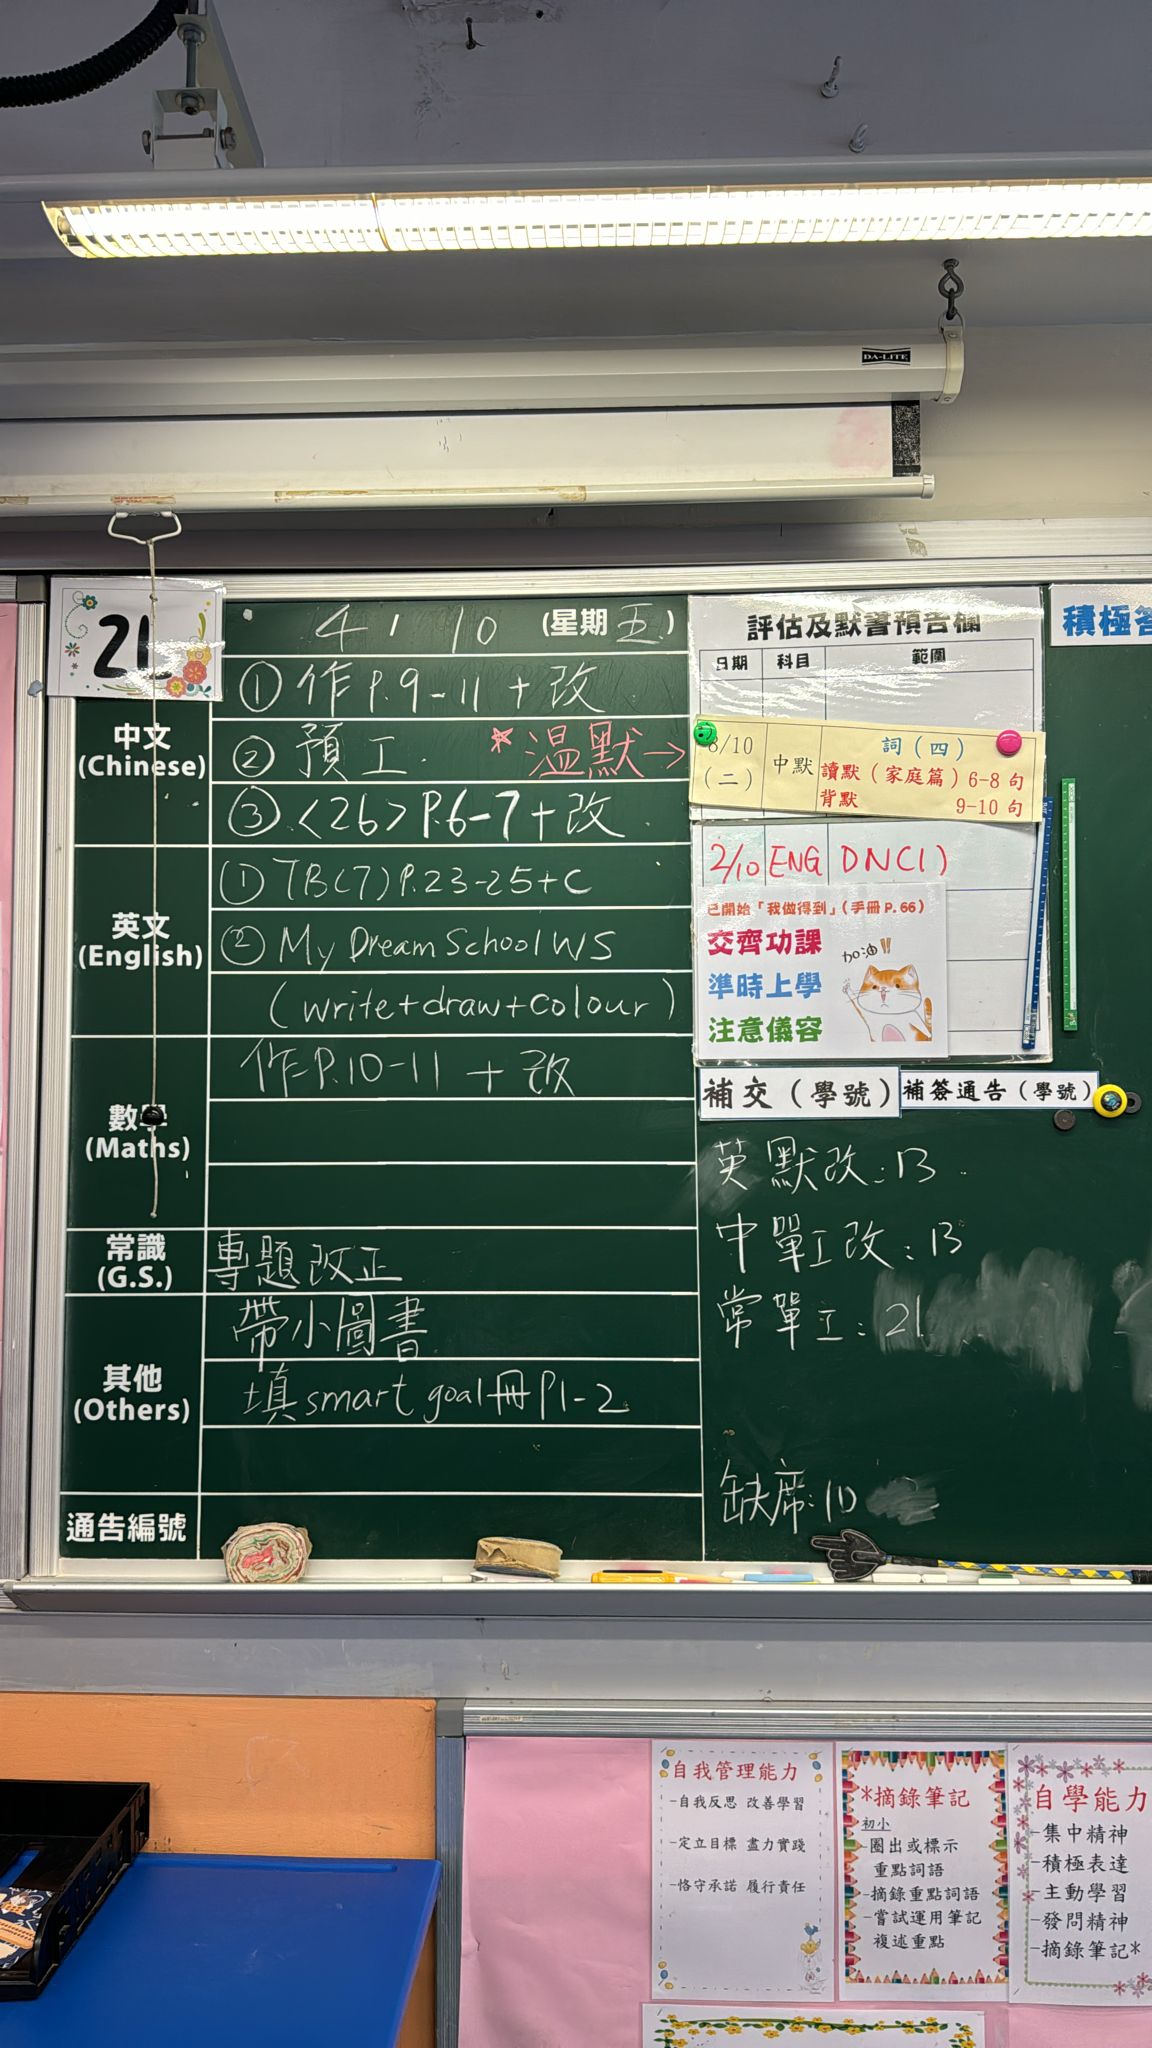 DA-LITE
21
4 / 10 (星期 五)
評估及默書預告欄
積極
日期 科目 範圍
中文
(Chinese)
① 作 P.9-11 + 改
② 預工. *溫默→
③ <26> P.6-7 + 改
8/10
(二)
中默
詞(四)
讀默(家庭篇) 6-8 句
背默 9-10 句
英文
(English)
① TB(7) P.23-25+C
② My Dream School WS
(write+draw+colour)
2/10 ENG DNC1)
已開始「我做得到」(手冊 P.66)
交齊功課
準時上學
注意儀容
加油!!
數學
(Maths)
作P.10-11 + 改
補交(學號)
補簽通告(學號)
英默改:13
中單工改:13
常單工:21
缺席:10
常識
(G.S.)
專題改正
其他
(Others)
帶小圖書
填smart goal冊 P1-2
通告編號
自我管理能力
-自我反思 改善學習
-定立目標 盡力實踐
-恪守承諾 履行責任
*摘錄筆記
初小
-圈出或標示
重點詞語
-摘錄重點詞語
-嘗試運用筆記
複述重點
自學能力
-集中精神
-積極表達
-主動學習
-發問精神
-摘錄筆記*